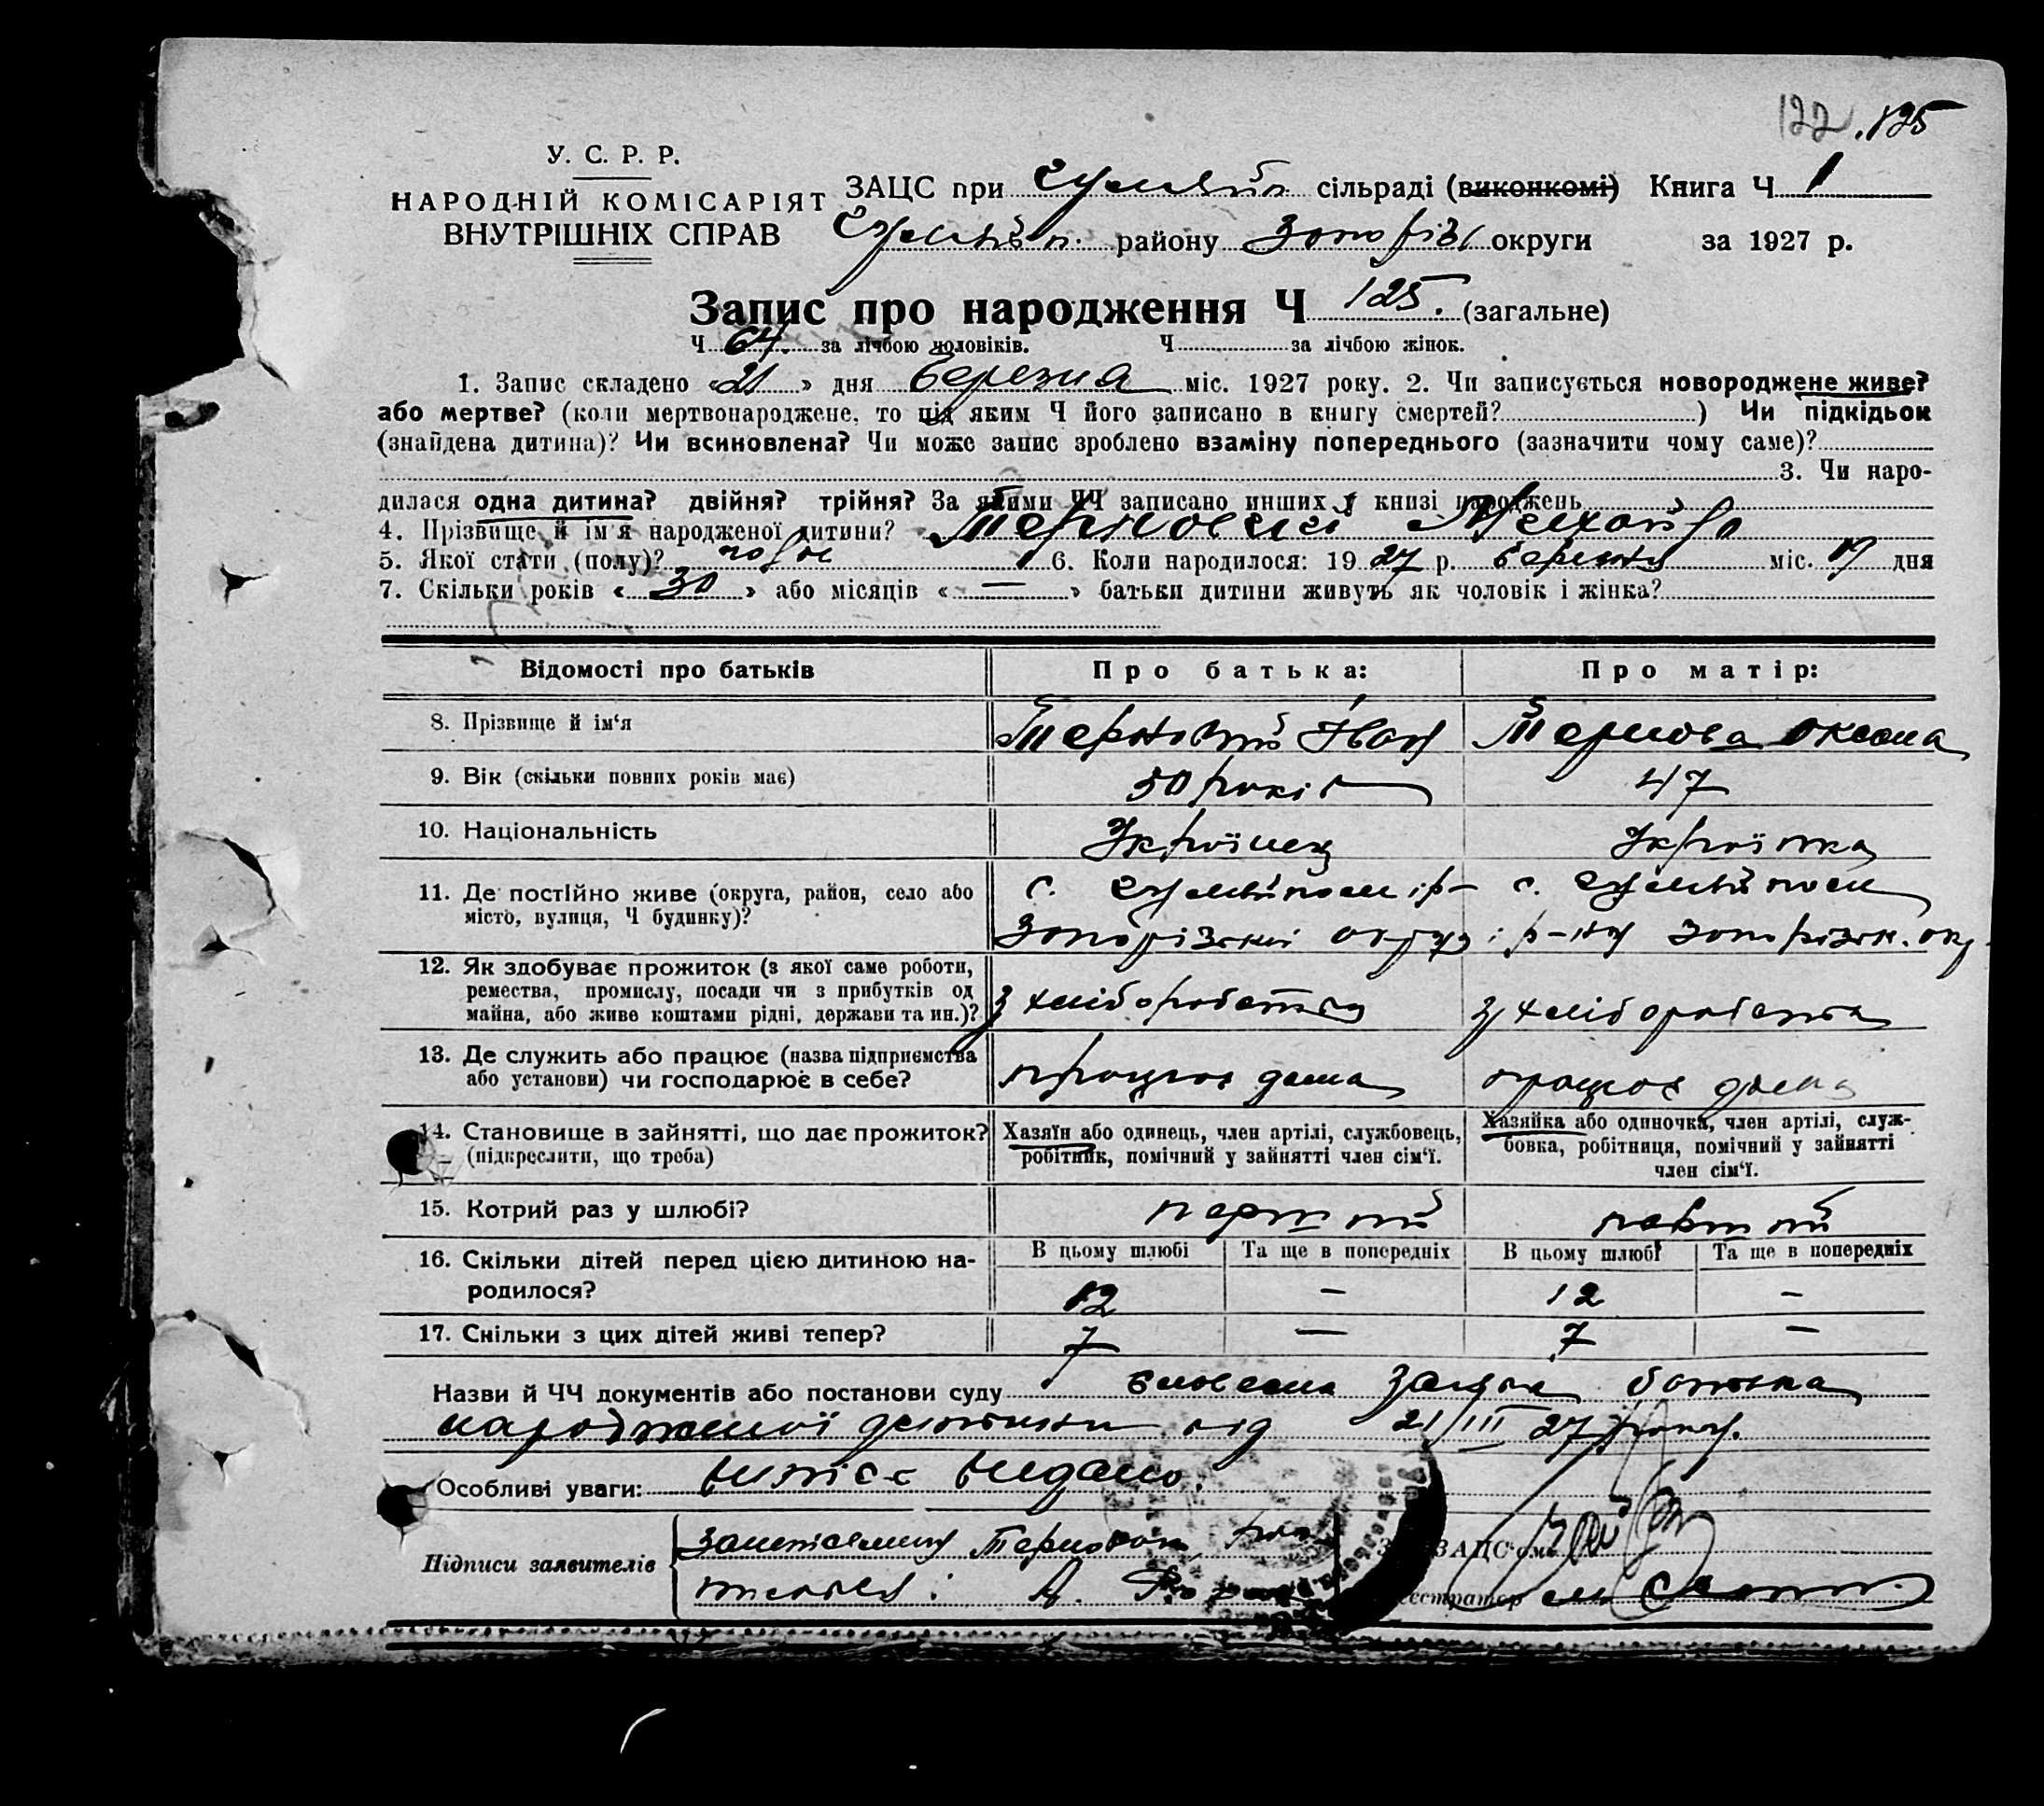 122. 125
У. С. Р. Р.
НАРОДНІЙ КОМІСАРІЯТ
ВНУТРІШНІХ СПРАВ
ЗАЦС при сільраді (виконкомі) Книга Ч 1
району округи за 1927 р.
Запис про народження Ч 125. (загальне)
Ч 64. за лічбою чоловіків. Ч за лічбою жінок.
1. Запис складено «21» дня березня міс. 1927 року. 2. Чи записується новороджене живе?
або мертве? (коли мертвонароджене, то під яким Ч його записано в книгу смертей? ) Чи підкідьок
(знайдена дитина)? Чи всиновлена? Чи може запис зроблено взаміну попереднього (зазначити чому саме)?
3. Чи наро-
дилася одна дитина? двійня? трійня? За якими ЧЧ записано инших у книзі народжень
4. Прізвище й ім'я народженої дитини? Михайло
5. Якої стати (полу)? 6. Коли народилося: 1927 р. березня міс. 19 дня
7. Скільки років «30» або місяців «—» батьки дитини живуть як чоловік і жінка?
Відомості про батьків Про батька: Про матір:
8. Прізвище й ім‘я Терновий Іван Тернова Оксана
9. Вік (скільки повних років має) 50 років 47
10. Національність Українец Українка
11. Де постійно живе (округа, район, село або с. р- с.
місто, вулиця, Ч будинку)? Запорізької округи р-ну Запорізк. окр.
12. Як здобуває прожиток (з якої саме роботи,
ремества, промислу, посади чи з прибутків од
майна, або живе коштами рідні, держави та ин.)? з хліборобства з хліборобства
13. Де служить або працює (назва підприємства
або установи) чи господарює в себе? працює дома працює дома
14. Становище в зайнятті, що дає прожиток? Хазяїн або одинець, член артілі, службовець, Хазяйка або одиночка, член артілі, служ-
(підкреслити, що треба) робітник, помічний у зайнятті член сім‘ї. бовка, робітниця, помічний у зайнятті
член сім‘ї.
15. Котрий раз у шлюбі? перший перший
16. Скільки дітей перед цією дитиною на- В цьому шлюбі Та ще в попередніх В цьому шлюбі Та ще в попередніх
родилося? 12 — 12 —
17. Скільки з цих дітей живі тепер? 7 — 7 —
Назви й ЧЧ документів або постанови суду словесна заява батька
народженої дитини від 21/III 27 року.
Особливі уваги: видано.
Підписи заявителів
ЗАЦС'ом